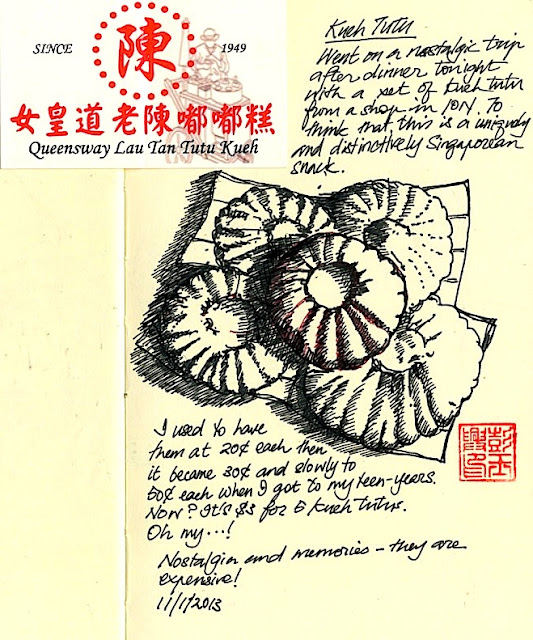 SINCE 陳 1949
女皇道老陳嘟嘟糕
Queensway Lau Tan Tutu Kueh
Kueh Tutu
Went on a nostalgic trip
after dinner tonight
with a set of kueh tutu
from a shop in ION. To
think that, this is a uniquely
and distinctively Singaporean
snack.
I used to have
them at 20¢ each then
it became 30¢ and slowly to
50¢ each when I got to my teen-years.
Now? It's $3 for 5 Kueh Tutus.
Oh my...!
Nostalgia and memories - they are
expensive!
11/1/2013